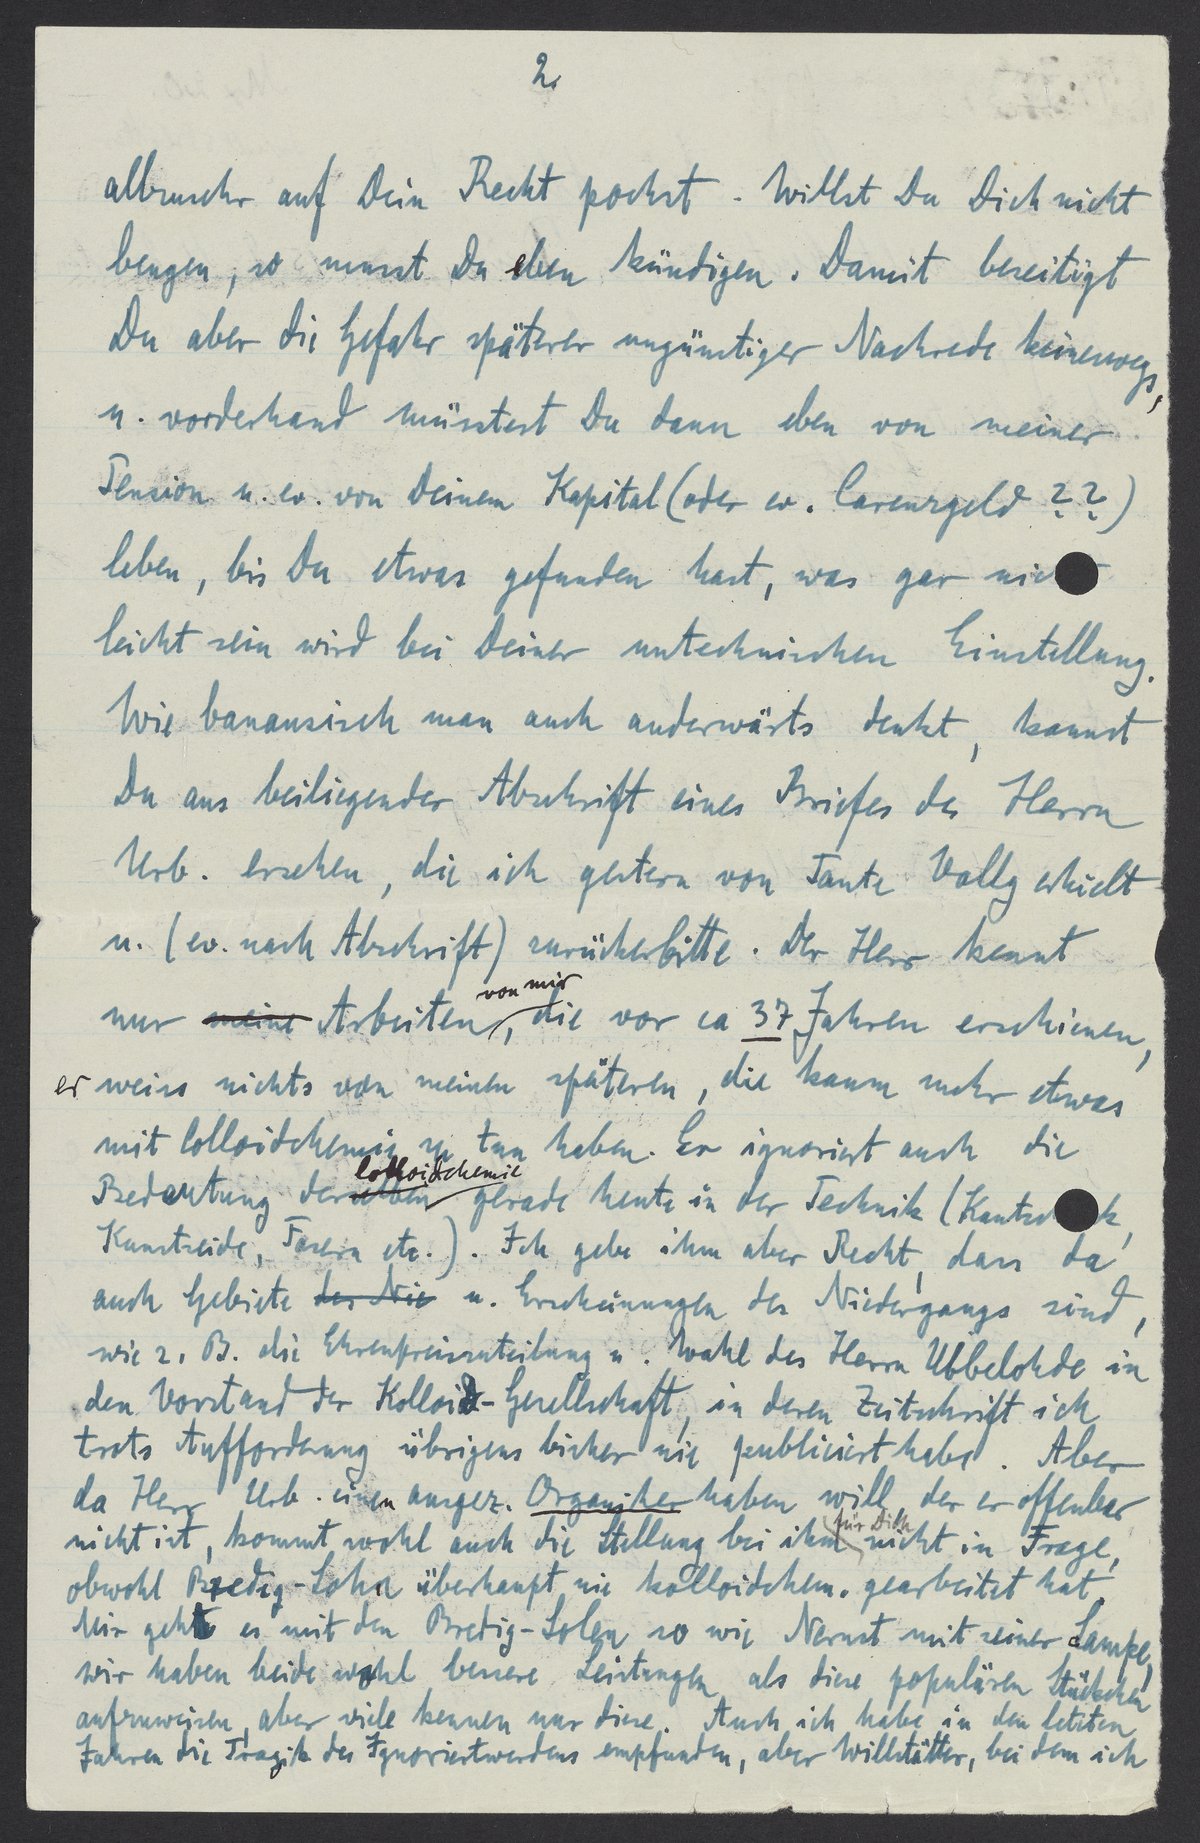 2.
allzusehr auf Dein Recht pochst. Willst Du Dich nicht
beugen, so musst Du eben kündigen. Damit beseitigt
Du aber die Gefahr späterer ungünstiger Nachrede keineswegs,
u. vorderhand müsstest Du dann eben von meiner
Pension u. ev. von Deinem Kapital (oder ev. Carenzgeld ??)
leben, bis Du etwas gefunden hast, was gar nicht
leicht sein wird bei Deiner untechnischen Einstellung.
Wie banausisch man auch anderwärts denkt, kannst
Du aus beiliegender Abschrift eines Briefes des Herrn
Urb. ersehen, die ich gestern von Tante Vally erhielt
u. (ev. nach Abschrift) zurückerbitte. Der Herr kennt
von mir
nur meine Arbeiten, die vor ca 37 Jahren erschienen,
er weiss nichts von meinen späteren, die kaum mehr etwas
mit Colloidchemie zu tun haben. Er ignoriert auch die
Colloidchemie
Bedeutung derselben gerade heute in der Technik (Kautschuk,
Kunstseide, Fasern etc.). Ich gebe ihm aber Recht, dass da
auch Gebiete des Nie u. Erscheinungen des Niedergangs sind,
wie z. B. die Ehrenpreiszuteilung u. Wahl des Herrn Ubbelohde in
den Vorstand der Kolloid-Gesellschaft, in deren Zeitschrift ich
trotz Aufforderung übrigens bisher nie publiciert habe. Aber
da Herr Urb. einen ausgez. Organiker haben will, der er offenbar
für Dich
nicht ist, kommt wohl auch die Stellung bei ihm nicht in Frage,
obwohl Bredig-Sohn überhaupt nie kolloidchem. gearbeitet hat.
Mir geht es mit den Bredig-Solen so wie Nernst mit seiner Lampe,
wir haben beide wohl bessere Leistungen als diese populären Stückchen
aufzuweisen, aber viele kennen nur diese. Auch ich habe in den letzten
Jahren die Tragik des Ignoriertwerdens empfunden, aber Willstätter, bei dem ich